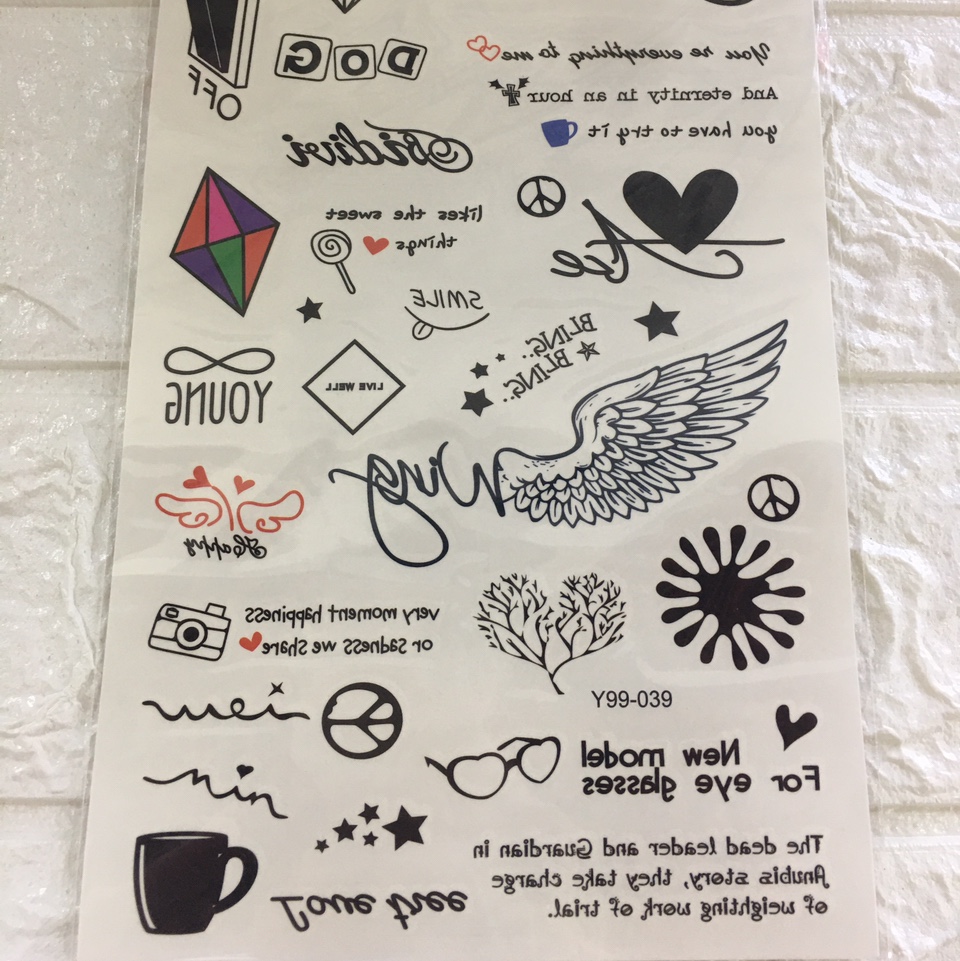 OFF
DOG
You're everything to me
And eternity in an hour
you have to try it
Bidivi
likes the sweet
things
Ace
SMILE
BLING..
BLING..
YOUNG
LIVE WELL
Wing
Happy
very moment happiness
or sadness we share
Y99-039
mei
New model
For eye glasses
nin
The dead leader and Guardian in
Anubis story, they take charge
of weighting work of trial.
Love tree